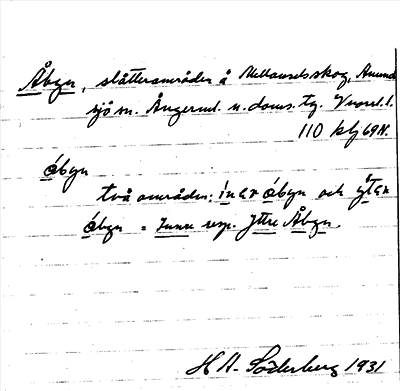 Åbyn, slåtterområden å Mellanselsskog, Anund
sjö sn. Ångerml. n. doms. tg. Vnorrl. l.
110 kbf 69 N.
ábyn
två områden: ínər ábyn och ýtər
ábyn = Inre resp. Yttre Åbyn.
H A. Söderberg 1931